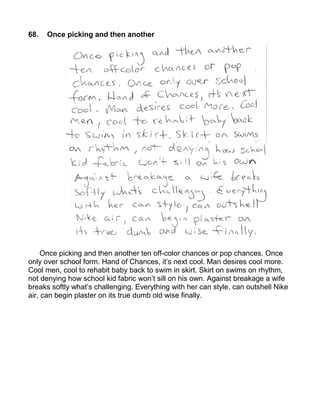 68. Once picking and then another
Once picking and then another
ten offcolor chances or pop
chances. Once only over school
form. Hand of Chances, it's next
cool. Man desires cool more. Cool
men, cool to rehabit baby back
to swim in skirt. Skirt on swims
on rhythm, not denying how school
kid fabric won't sill on his own
Against breakage a wife breaks
softly what's challenging. Everything
with her can style, can outshell
Nike air, can begin plaster on
its true dumb and wise finally.
Once picking and then another ten off-color chances or pop chances. Once
only over school form. Hand of Chances, it's next cool. Man desires cool more.
Cool men, cool to rehabit baby back to swim in skirt. Skirt on swims on rhythm,
not denying how school kid fabric won't sill on his own. Against breakage a wife
breaks softly what's challenging. Everything with her can style, can outshell Nike
air, can begin plaster on its true dumb old wise finally.